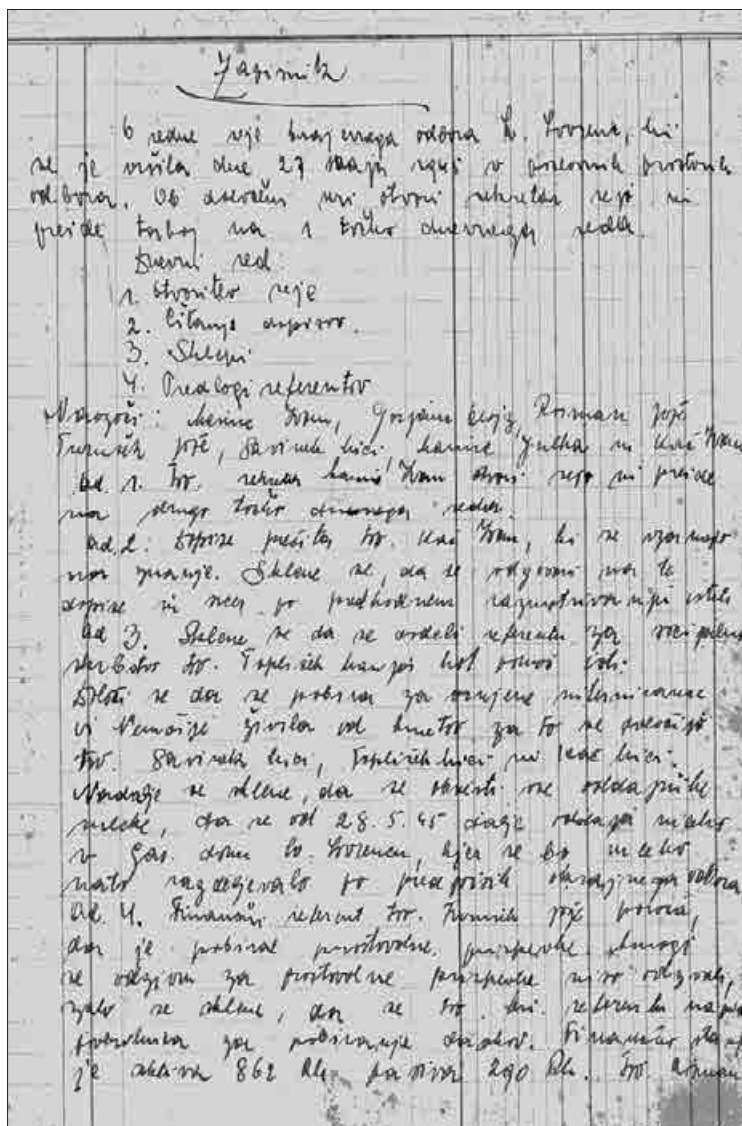 Zapisnik
6 redne seje krajevnega odbora Sv. Lovrenc, ki
se je vršila dne 27 maja 1945 v poslovnih prostorih
odbora. Ob uri otvori sekretar sejo in
preide takoj na 1 točko dnevnega reda.
Dnevni red:
1. Otvoritev seje
2. Čitanje dopisov.
3. Sklepi
4. Predlogi referentov
Navzoči: Ivan, Alojz, Rosman Jože
Jože, Savinek Mici, Julka in Kač Ivan
Ad. 1. Tov. sekretar Ivan otvori sejo in preide
na drugo točko dnevnega reda.
Ad. 2. Dopise prečita tov. Kač Ivan, ki se vzamejo
na znanje. Sklene se, da se odgovori na te
dopise in sicer po predhodnem razmotrivanju istih
Ad 3. Sklene se da se dodeli referentu za socijalno
skrbstvo tov. Toplišek kot pomoč
Določi se da se pobira za internirance
v Nemčiji živila od kmetov za to se določijo
tov. Savinek Mici, Toplišek Mici in Kač Mici.
Nadalje se sklene, da se obvesti vse oddajnike
mleka, da se od 28. 5. 45 dalje oddaja mleko
v Gas. domu Sv. Lovrenc, kjer se bo mleko
nato razdeljevalo po predpisih okrajnega odbora
Ad. 4. Finančni referent tov. Jože poroča,
da je pobiral prostovoljne prispevke. Mnogi
se odzivu za prostovoljne prispevke niso odzvali,
zato se sklene, da se tov. fin. referentu
za pobiranje davkov. Finančno stanje
je aktiva 862 Rk. pasiva 290 Rk. Tov. Rosman